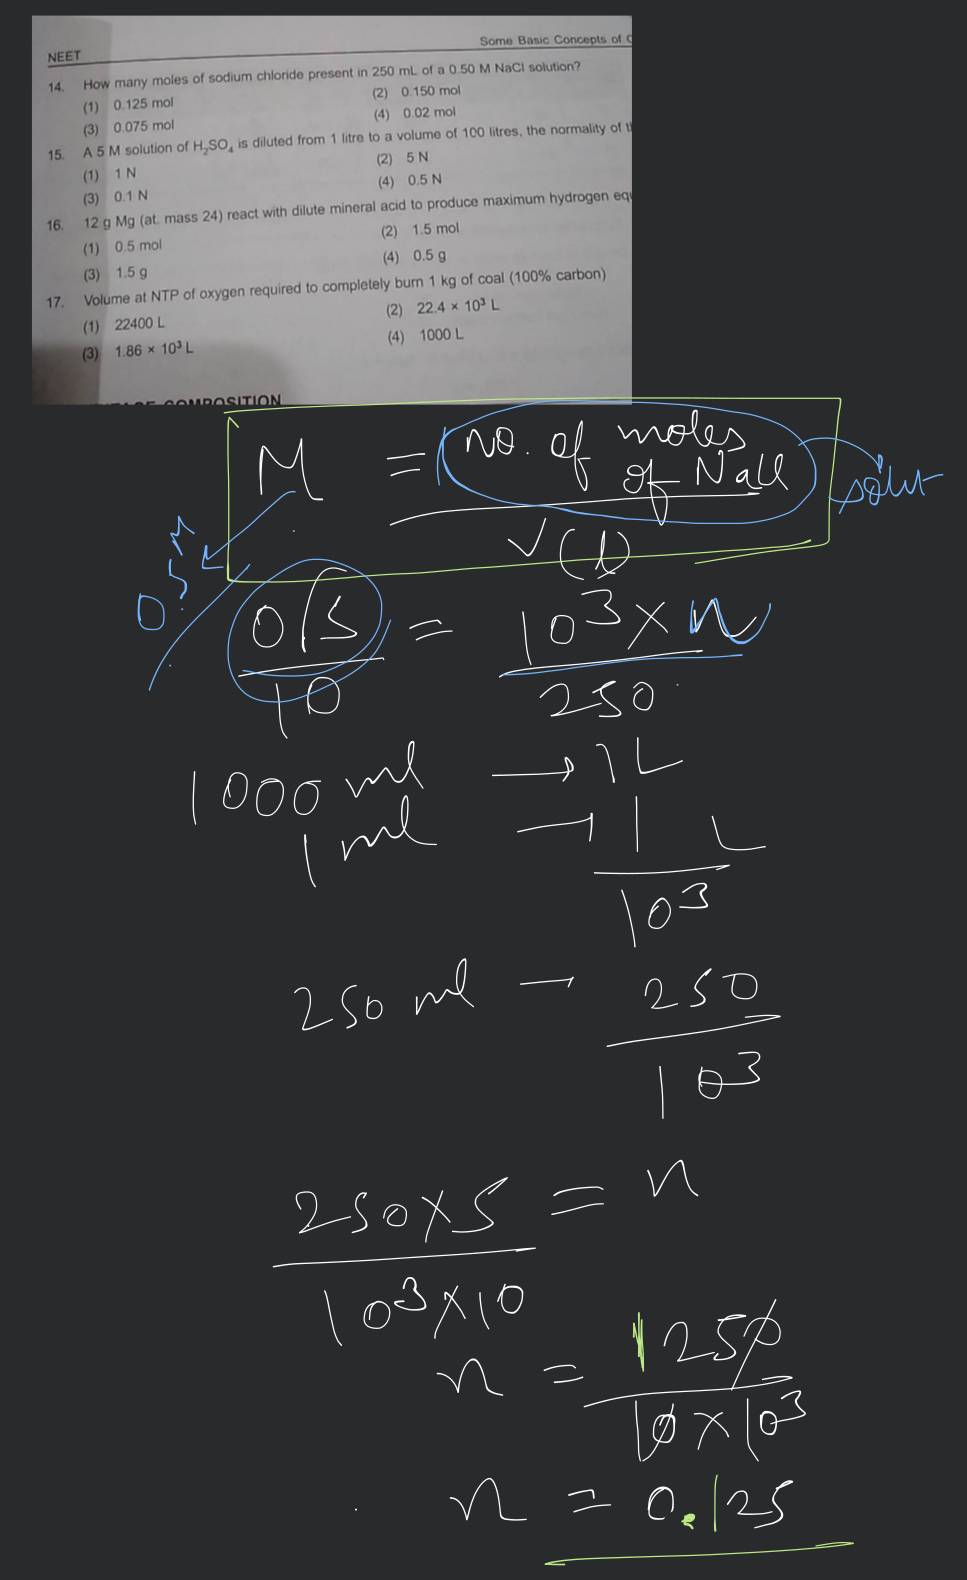 NEET
Some Basic Concepts of C
14. How many moles of sodium chloride present in 250 mL of a 0.50 M NaCl solution?
(1) 0.125 mol (2) 0.150 mol
(3) 0.075 mol (4) 0.02 mol
15. A 5 M solution of H₂SO₄ is diluted from 1 litre to a volume of 100 litres, the normality of t
(1) 1 N (2) 5 N
(3) 0.1 N (4) 0.5 N
16. 12 g Mg (at. mass 24) react with dilute mineral acid to produce maximum hydrogen equ
(1) 0.5 mol (2) 1.5 mol
(3) 1.5 g (4) 0.5 g
17. Volume at NTP of oxygen required to completely burn 1 kg of coal (100% carbon)
(1) 22400 L (2) 22.4 × 10³ L
(3) 1.86 × 10³ L (4) 1000 L
COMPOSITION
M = no. of moles
of Nacl
V (l)
solut
0.5 = 10³ × n
10 250
1000 ml → 1L
1 ml → 1 L
10³
250 ml — 250
10³
250×5 = n
10³×10
n = 1250
10×10³
n = 0.125